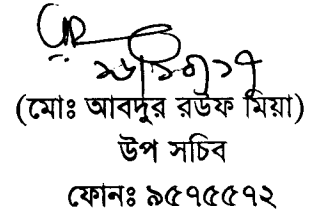 (মোঃ আবদুর রউফ মিয়া)
উপ সচিব
ফোনঃ ৯৫৭৫৫৭২